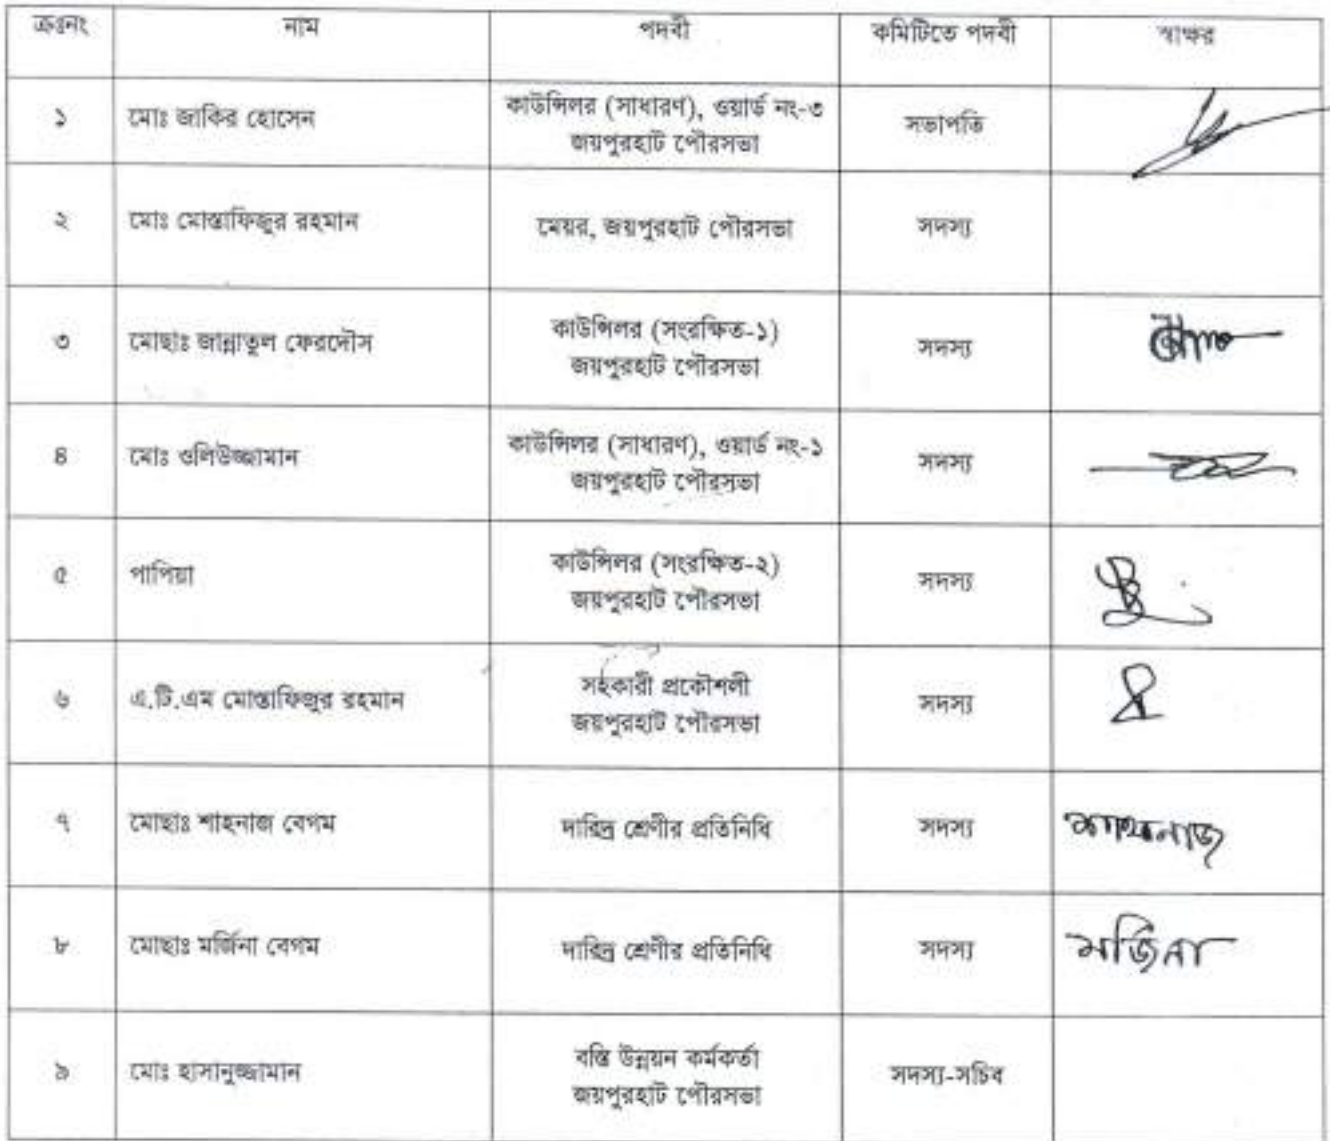 ক্রঃনং নাম পদবী কমিটিতে পদবী স্বাক্ষর
১ মোঃ জাকির হোসেন কাউন্সিলর (সাধারণ), ওয়ার্ড নং-৩ সভাপতি
জয়পুরহাট পৌরসভা
২ মোঃ মোস্তাফিজুর রহমান মেয়র, জয়পুরহাট পৌরসভা সদস্য
৩ মোছাঃ জান্নাতুল ফেরদৌস কাউন্সিলর (সংরক্ষিত-১) সদস্য
জয়পুরহাট পৌরসভা
৪ মোঃ ওলিউজ্জামান কাউন্সিলর (সাধারণ), ওয়ার্ড নং-১ সদস্য
জয়পুরহাট পৌরসভা
৫ পাপিয়া কাউন্সিলর (সংরক্ষিত-২) সদস্য
জয়পুরহাট পৌরসভা
৬ এ.টি.এম মোস্তাফিজুর রহমান সহকারী প্রকৌশলী সদস্য
জয়পুরহাট পৌরসভা
৭ মোছাঃ শাহনাজ বেগম দারিদ্র শ্রেণীর প্রতিনিধি সদস্য শাহনাজ
৮ মোছাঃ মর্জিনা বেগম দারিদ্র শ্রেণীর প্রতিনিধি সদস্য মর্জিনা
৯ মোঃ হাসানুজ্জামান বস্তি উন্নয়ন কর্মকর্তা সদস্য-সচিব
জয়পুরহাট পৌরসভা